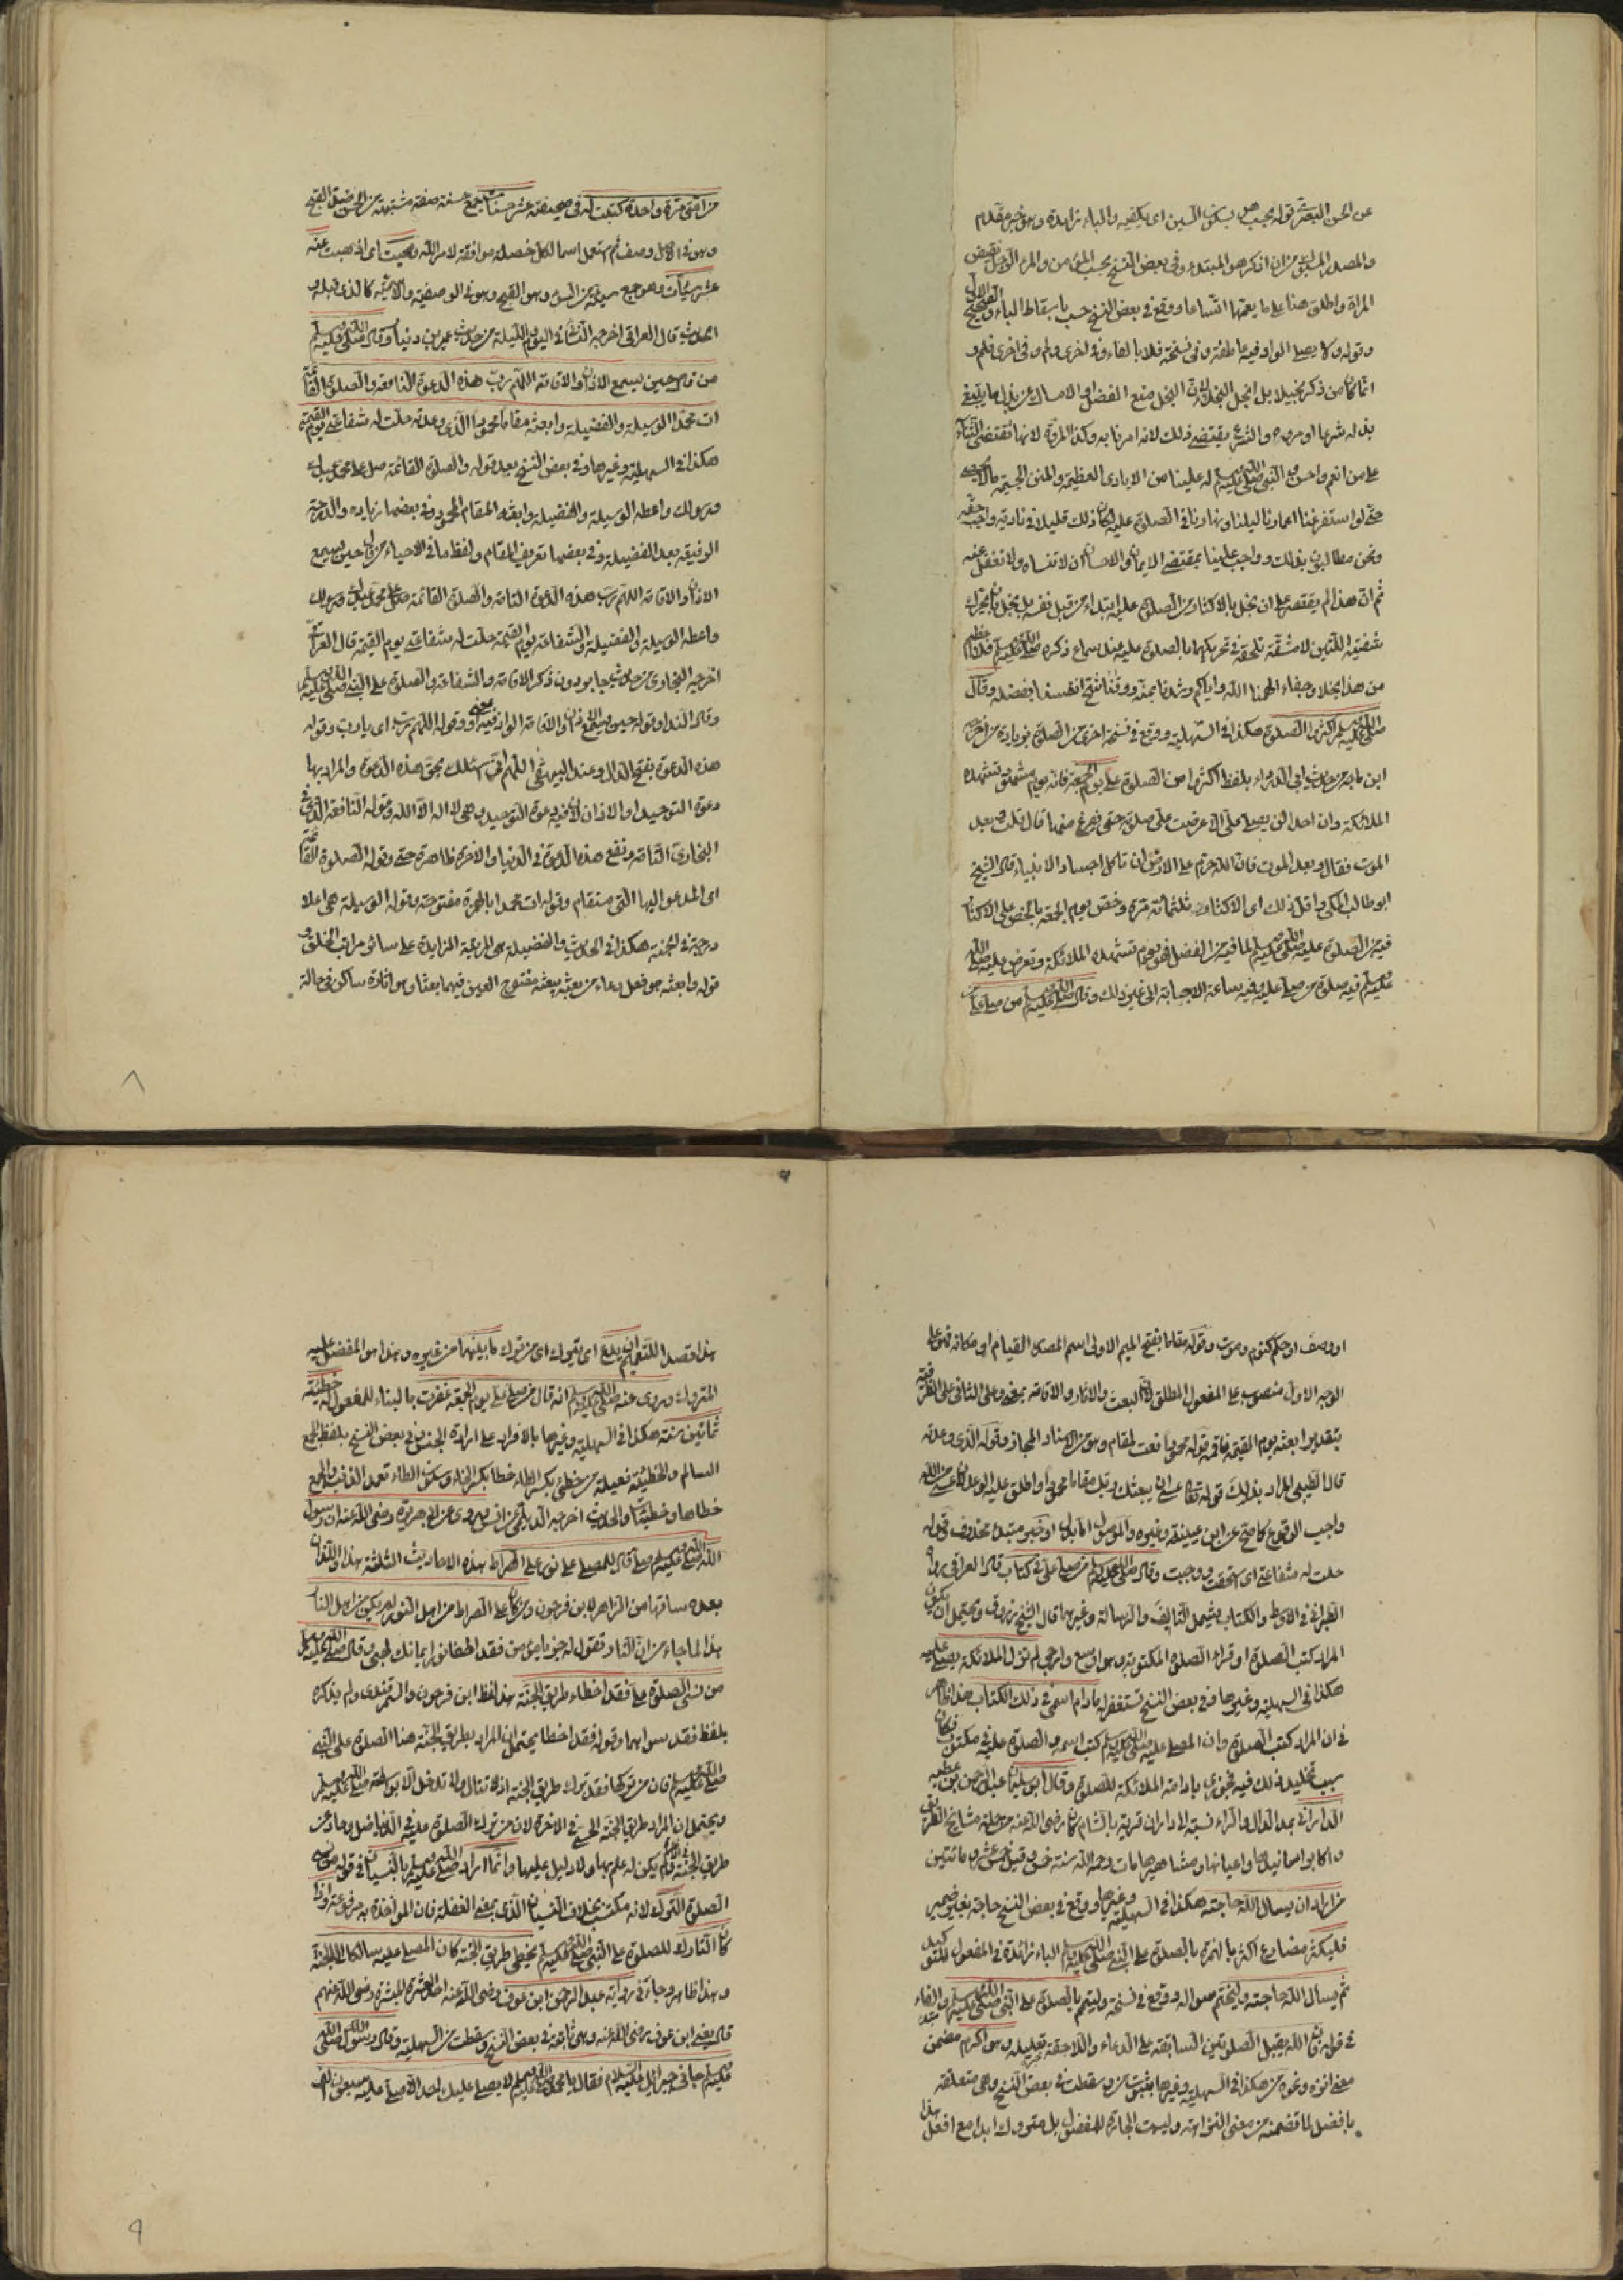 عن الحسن البصري قوله بحسب هو بسكون السين اى يكفيه والباء زايدة وهو خبر مقدم
والمصدر المسبوك من ان اذكر هو المبتدء وفى بعض النسخ بحسب المؤمن والمراد الاول نقيض
المراة واطلق هنا على ما يعمها اتساعا ووقع فى بعض النسخ حسب باسقاط الباء
وقوله ولا يصلى الواو فيه عاطفة وفى نسخة فلا بالفاء وفى اخرى ولم وفى اخرى فلم و
انما كان من ذكر بخيلا بل ابخل البخلاء لان البخل منع الفضل او الامساك عن بذل ما ينبغى
بذله شرعا او مروءة والشرع يقتضى ذلك لانه امرنا به وكذا المروة لانها تقتضى الثناء
على من انعم واحسن والنبى صلى الله عليه وسلم له علينا من الايادى العظيمة والمنن الجسيمة ما لا
حتى لو استفرغنا اعمارنا ليلنا ونهارنا فى الصلوة عليه لكان ذلك قليلا فى تادية واجب حقه
ونحن مطالبون بذلك وواجب علينا بمقتضى الايمان والاحسان ان لا ننساه ولا نغفل عنه
ثم ان هذا لم يقتصر على ان بخل بالاكثار من الصلوة عليه ابتداء من قبل نفسه بل بخل بان يحرك
شفتيه اللتين لا مشقة تلحقه فى تحريكهما بالصلوة عليه عند سماع ذكره صلى الله عليه وسلم فلا اعظم
من هذا بخلا وجفاء الهمنا الله واياكم رشدنا بمنه ووقانا شح انفسنا بفضله وقال
صلى الله عليه وسلم اكثروا الصلوة هكذا فى السهلية ووقع فى نسخة اخرى من الصلوة بزيادة من اخرجه
ابن ماجة من حديث ابى الدرداء بلفظ اكثروا من الصلوة على يوم الجمعة فانه يوم مشهود تشهده
الملائكة وان احدا لن يصلى على الا عرضت على صلوته حتى يفرغ منها قال قلت وبعد
الموت فقال وبعد الموت فان الله حرم على الارض ان تاكل اجساد الانبياء قال الشيخ
ابو طالب المكى واقل ذلك اى الاكثار ثلثمائة مرة وخص يوم الجمعة بالحض على الاكثار
فيه من الصلوة عليه صلى الله عليه وسلم لما فيه من الفضل فهو يوم تشهده الملائكة وتعرض عليه صلى الله
عليه وسلم فيه صلوة من صلى عليه وفيه ساعة الاجابة الى غير ذلك وقال صلى الله عليه وسلم من صلى على
من امتى مرة واحدة كتبت له فى صحيفته عشر حسنات جمع حسنة صفة مشبهة من الحسن ضد القبح
وهو فى الاصل وصف ثم استعمل اسما لكل خصلة موافقة لامر الله ومحيت اى اذهبت عنه
عشر سيئات وهو جمع سيئة من السوء وهو القبح وهو فى الوصفية والاسمية كالذى قبله و
الحديث قال العراقى اخرجه النسائى فى اليوم والليلة من حديث عمير بن دينار وقال صلى الله عليه وسلم
من قال حين يسمع الاذان والاقامة اللهم رب هذه الدعوة النافعة والصلوة القائمة
ات محمدا الوسيلة والفضيلة وابعثه مقاما محمودا الذى وعدته حلت له شفاعتى يوم القيمة
هكذا فى السهلية وغيرها وفى بعض النسخ بعد قوله والصلوة القائمة صل على محمد عبدك
ورسولك واعطه الوسيلة والفضيلة وابعثه المقام المحمود وفى بعضها زيادة والدرجة
الرفيعة بعد الفضيلة وفى بعضها تعريف المقام ولفظ ما فى الاحياء من قال حين يسمع
الاذان والاقامة اللهم رب هذه الدعوة التامة والصلوة القائمة صل على محمد عبدك ورسولك
واعطه الوسيلة والفضيلة والشفاعة يوم القيمة حلت له شفاعتى يوم القيمة قال العراقى
اخرجه البخارى من حديث جابر دون ذكر الاقامة والشفاعة والصلوة على النبى صلى الله عليه وسلم
وقال النداء وقوله حين يسمع الاذان والاقامة الواو فيه بمعنى او وقوله اللهم رب اى يا رب وقوله
هذه الدعوة بفتح الدال وعند البيهقى اللهم انى اسئلك بحق هذه الدعوة والمراد بها
دعوة التوحيد او الاذان لان فيه دعوة التوحيد وهى لا اله الا الله وقوله النافعة الذى فى
البخارى التامة ونفع هذه الدعوة فى الدنيا والاخرة ظاهرة حتى وقوله الصلوة القائمة
اى المدعو اليها التى ستقام وقوله ات محمدا بالهمزة مفتوحة وقوله الوسيلة هى اعلا
درجة فى الجنة هكذا فى الحديث والفضيلة هى المرتبة الزايدة على سائر مراتب الخلق و
قوله وابعثه هو فعل دعاء من بعثه يبعثه مفتوح العين فيهما بعثا وهو اثارة ساكن فى حالة
او وصف او حكم كنوم وموت وقوله مقاما بفتح الميم الاولى اسم المصدر القيام او مكانه فهو على
الوجه الاول منصوب على المفعول المطلق لان البعث والاثارة والاقامة بمعنى وعلى الثانى على الظرفية
بتقدير ابعثه يوم القيمة فاقمه قوله محمودا نعت لمقام وهو من الاسناد المجاز وقوله الذى وعدته
قال الطيبى المراد بذلك قوله تعالى عسى ان يبعثك ربك مقاما محمودا واطلق عليه الوعد لان عسى من الله
واجب الوقوع كما صح عن ابن عيينة وغيره والموصول اما بدل او خبر مبتدء محذوف قوله
حلت له شفاعتى اى استحقت ووجبت وقال صلى الله عليه وسلم من صلى على فى كتاب قال العراقى رواه
الطبرانى فى الاوسط والكتاب يشمل التاليف والرسالة وغيرهما قال الشيخ زروق ويحتمل ان يكون
المراد كتب الصلوة او قراءة الصلوة المكتوبة وهو اوسع وارجى لم تزل الملائكة يصلى عليه
هكذا فى السهلية وغيرها وفى بعض النسخ تستغفر له ما دام اسمى فى ذلك الكتاب هذا ظاهر
فى ان المراد كتب الصلوة وان المصلى عليه صلى الله عليه وسلم كتب اسمه والصلوة عليه فى مكتوب فكان
سبب تخليد ذلك فيه فجوزى بادامة الملائكة للصلوة وقال ابو سليمان عبد الرحمن بن عطية
الدارانى بمد الدال والراء نسبة الى داران قرية بالشام كان رضى الله عنه من جلة مشايخ الطريق
واكابر اساتيدها واعيانها ومشاهيرها مات رحمه الله سنة خمس وقيل خمس عشرة ومائتين
من اراد ان يسال الله حاجته هكذا فى السهلية وغيرها ووقع فى بعض النسخ حاجة بغير ضمير
فليكثر مضارع اكثر بالهمزة بالصلوة على النبى صلى الله عليه وسلم الباء زائدة فى المفعول للتوكيد
ثم يسال الله حاجته وليختم سواله ووقع فى نسخة وليتم بالصلوة على النبى صلى الله عليه وسلم والفاء
فى قوله فان الله يقبل الصلوتين السابقة على الدعاء واللاحقة تعليله وهو اكرم مضمن
معنى انزه ونحوه من هكذا فى السهلية وغيرها بثبوت من وسقطت فى بعض النسخ وهى متعلقة
بافضل لما تضمنه من معنى النزاهة وليست الجارة للمفضول بل متروك ابدا مع افعل هذا
هذا القصد التعميم ان يدع اى يترك اى من ترك ما بينهما من غيره وهذا هو المفضل عليه
المتروك وروى عنه صلى الله عليه وسلم انه قال من صلى على يوم الجمعة غفرت بالبناء للمفعول له خطيئة
ثمانين سنة هكذا فى السهلية وغيرها بالافراد على ارادة الجنس وفى بعض النسخ بلفظ الجمع
السالم والخطيئة فعيلة من خطئ بكسر الطاء خطا بكسر الخاء وسكون الطاء تعمد الذنب والجمع
خطايا وخطيئات والحديث اخرجه الديلمى عن انس وروى عن ابى هريرة رضى الله عنه ان رسول
الله صلى الله عليه وسلم قال للمصلى على نور على الصراط هذه الاحاديث الثلثة هذا واللذان
بعده ساقها من الزاهر لابن فرحون ومن كان على الصراط من اهل النور لم يكن من اهل النار
هذا لما جاء من ان النار تقول له جز يا مؤمن فقد اطفا نور ايمانك لهبى وقال صلى الله عليه وسلم
من نسى الصلوة على فقد اخطاء طريق الجنة هذا لفظ ابن فرحون والسمرقندى ولم يذكره
بلفظ فقد سواهما وقوله فقد اخطا يحتمل ان المراد بطريق الجنة هنا الصلوة على النبى
صلى الله عليه وسلم فان من تركها فقد ترك طريق الجنة اذ لا تنال ولا تدخل الا بواسطة صلى الله عليه وسلم
ويحتمل ان المراد طريق الجنة الحسى فى الاخرة لان من ترك الصلوة عليه فى الدنيا ضل وحاد عن
طريق الجنة فى الاخرة فلم يكن له علم بها ولا دليل عليها وانما اراد صلى الله عليه وسلم بالنسيان فى قوله من نسى
الصلوة الترك لانه مكتسب بخلاف النسيان الذى بمعنى الغفلة فان المواخذة به مرفوعة واذا
كان التارك للصلوة على النبى صلى الله عليه وسلم يخطى طريق الجنة كان المصلى عليه سالكا الى الجنة
وهذا ظاهر وجاء فى رواية عبد الرحمن ابن عوف رضى الله عنه احد العشرة المبشرة رضى الله عنهم
قال يعنى ابن عوف رضى الله عنه وهى ثابتة فى بعض النسخ وسقطت من السهلية وقال رسول الله صلى الله
عليه وسلم جاءنى جبرائيل عليه السلام فقال يا محمد صلى الله عليه وسلم لا يصلى عليك احد الا صلى عليه سبعون الف
٨
٩